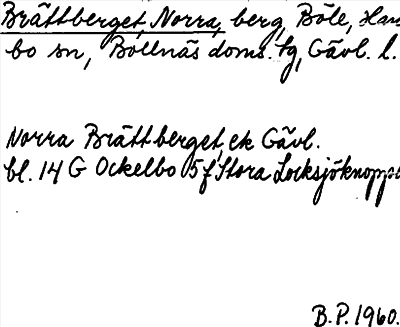 Brättberget, Norra, berg, Böle, Han
bo sn, Bollnäs doms. tg, Gävl. l.
Norra Brättberget, ek Gävl.
bl. 14 G Ockelbo 5 f Stora Locksjöknopp
B.P. 1960.